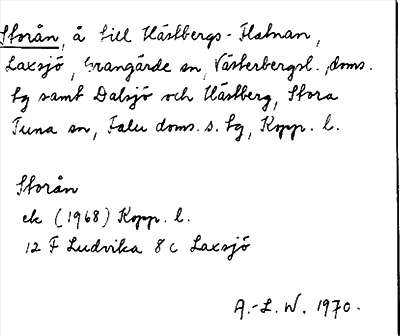 Storån, å till Hästbergs-Flatnan,
Laxsjö, Grangärde sn, Västerbergsl. doms.
tg samt Dalsjö och Hästberg, Stora
Tuna sn, Falu doms. s. tg, Kopp. l.
Storån
ek (1968) Kopp. l.
12 F Ludvika 8 c Laxsjö
A.-L. W. 1970.